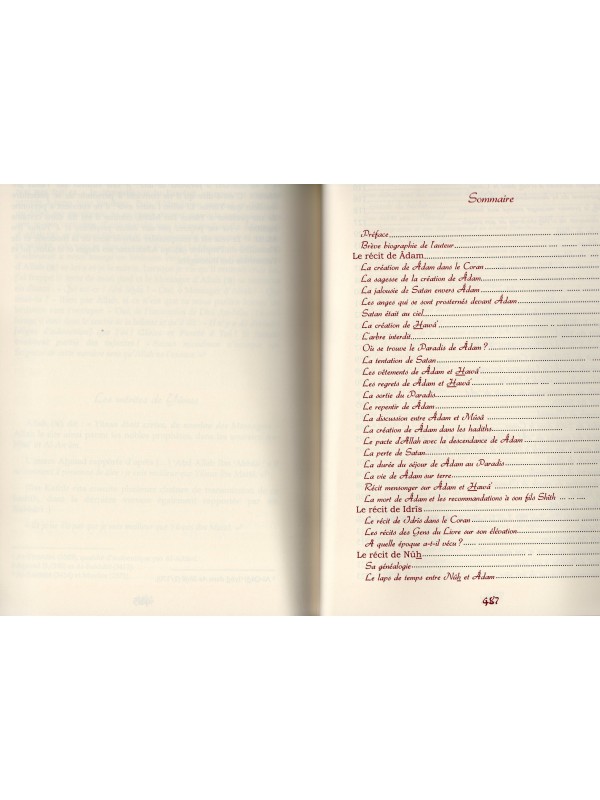 Sommaire
Préface
Brève biographie de l'auteur
Le récit de Âdam
La création de Âdam dans le Coran
La sagesse de la création de Âdam
La jalousie de Satan envers Âdam
Les anges qui se sont prosternés devant Âdam
Satan était au ciel
La création de Hawâ'
L'arbre interdit
Où se trouve le Paradis de Âdam ?
La tentation de Satan
Les vêtements de Âdam et Hawâ'
Les regrets de Âdam et Hawâ'
La sortie du Paradis
Le repentir de Âdam
La discussion entre Âdam et Mûsâ
La création de Âdam dans les hadiths
Le pacte d'Allah avec la descendance de Âdam
La perte de Satan
La durée du séjour de Âdam au Paradis
La vie de Âdam sur terre
Récit mensonger sur Âdam et Hawâ'
La mort de Âdam et les recommandations à son fils Shîth
Le récit de Idrîs
Le récit de Idrîs dans le Coran
Les récits des Gens du Livre sur son élévation
A quelle époque a-t-il vécu ?
Le récit de Nûh
Sa généalogie
Le laps de temps entre Nûh et Âdam
487